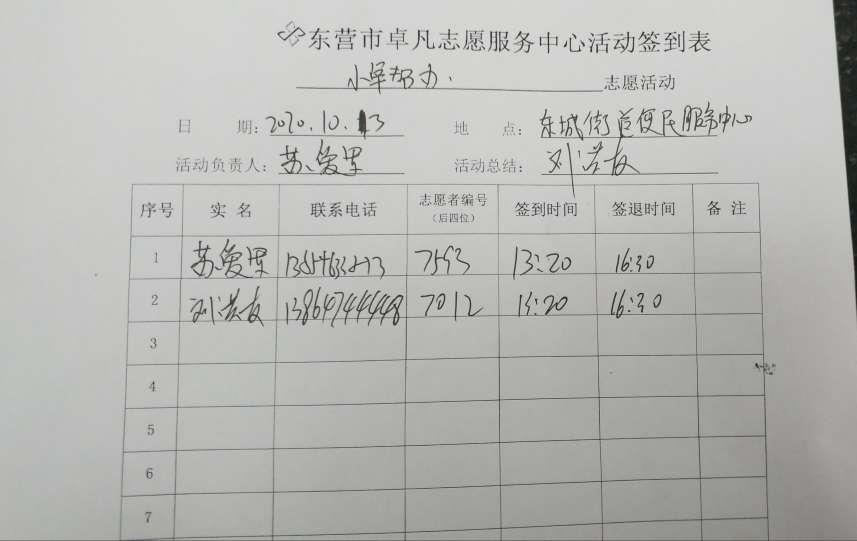 东营市卓凡志愿服务中心活动签到表
小草帮办. 志愿活动
日 期: 2020.10.13 地 点: 东城街道便民服务中心
活动负责人: 苏爱 活动总结: 刘洪友
序号 实 名 联系电话 志愿者编号(后四位) 签到时间 签退时间 备 注
1 苏爱 7593 13:20 16:30
2 刘洪友 13864744448 7012 13:20 16:30
3
4
5
6
7